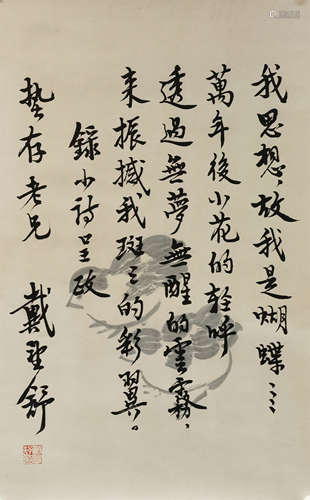 我思想，故我是蝴蝶……
萬年後小花的輕呼
透過無夢無醒的雲霧，
来振撼我斑斑的彩翼。
錄小詩呈政
蟄存老兄
戴望舒